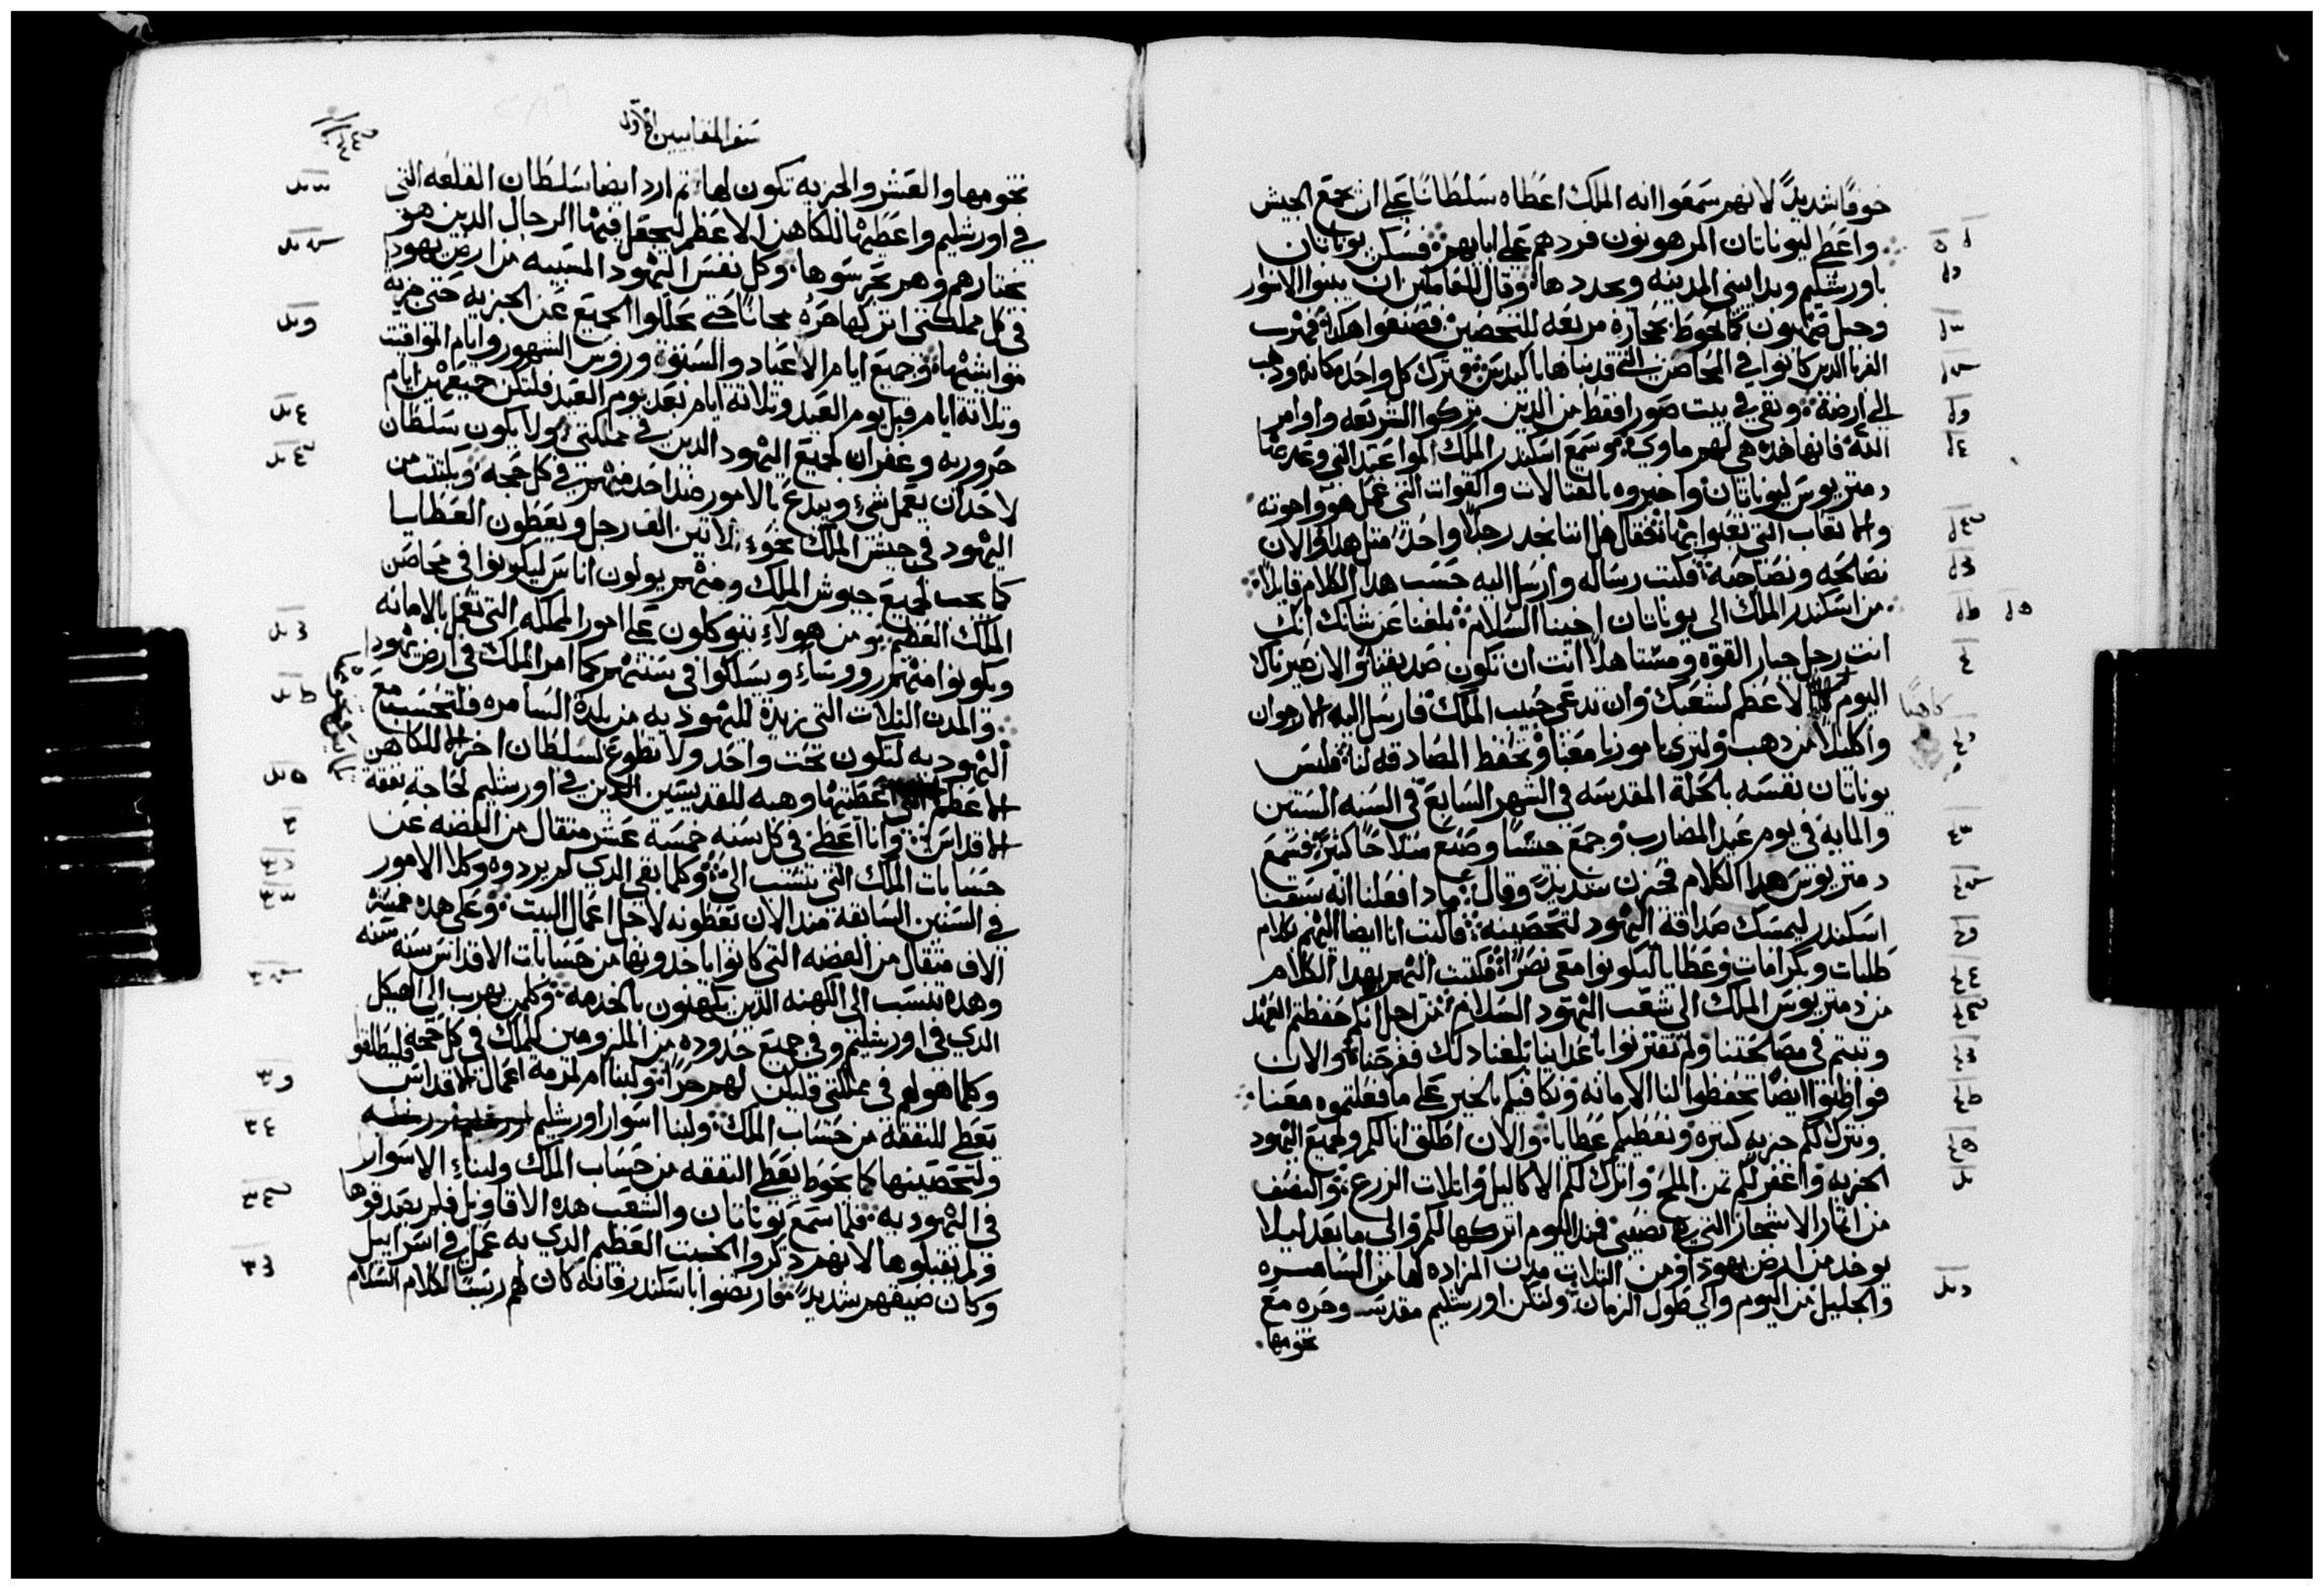 خوفًا شديدًا لانهم سمعوا انه الملك اعطاه سلطانًا على ان يجمع الجيش
واعطي ليوناتان المرهونون فردهم على ابايهم فسكن يوناتان
باورشليم وبدا يبني المدينه ويجددها وقال للعاملين ان يبنوا الاسوار
وجبل صهيون كما يحوط بحجاره مربعه للتحصين فصنعوا هكذا فهرب
الغربا الدين كانوا في المحاصن التي قد بناها باكيدس وترك كل واحد مكانه ودهب
الي ارضه وبقي في بيت صورا فقط من الدين تركوا الشريعه واوامر
الله فانها هده هي لهم ماوي وسمع اسكندر الملك المواعيد التي وعد عنها
دمتريوس ليوناتان واخبروه بالقتالات والقوات التي عمل هو واخوته
والاتعاب التي تعبوا بها فقال هل اننا نجد رجلاً واحدًا مثل هدا والان
نصالحه ونصاحبه فكتب رساله وارسل اليه حسب هدا الكلام قايلاً
من اسكندر الملك الى يوناتان اخينا السلام بلغنا عن شانك انك
انت رجل جبار القوه ومستاهلاً انت ان تكون صديقنا والان صيرناك
اليوم كاهنًا الاعظم لشعبك وان تدعى حبيب الملك فارسل اليه الارجوان
واكليلاً من دهب ولتري بامورنا معنا وتحفظ المصادقه لنا فلبس
يوناتان نفسه بالحلة المقدسه في الشهر السابع في السنه الستين
والمايه في يوم عيد المضارب وجمع جيشًا وصنع سلاحًا كثيرًا فسمع
دمتريوس هدا الكلام فحزن شديدًا وقال مادا فعلنا انه سبقنا
اسكندر ليمسك صداقة اليهود لتحصينه فاكتب انا ايضا اليهم كلام
طلبات وبكرامات وعطايا ليكونوا معي نصرًا فكتب اليهم بهدا الكلام
من دمتريوس الملك الى شعب اليهود السلام من اجل انكم حفظتم العهد
وتبتم في مصالحتنا ولم تقتربوا باعداينا بلغنا دلك ففرحنا والان
فواظبوا ايضًا تحفظوا لنا الامانه ونكافيكم بالخير على ما فعلتموه معنا
ونترك لكم جزيه كثيره ونعطيكم عطايا والان اطلق انا لكم ولجميع اليهود
الجزيه واغفر لكم ثمن الملح واترك لكم الاكاليل واتلات الزرع والنصف
من اتمار الاشجار التي نصيبي فمند اليوم اتركها لكم والى ما بعد ليلا
يوخد من ارض يهودا ومن التلات مدن المزاده لها من السامره
والجليل من اليوم والي طول الزمان ولتكن اورشليم مقدسه وحره مع
تخومها
سفر المقابيين الاول
تخومها والعشر والجزيه تكون لها تم ارد ايضا سلطان القلعه التي
في اورشليم واعطيها للكاهن الاعظم ليجعل فيها الرجال الدين هو
يختارهم وهم يحرسوها وكل نفس اليهود المسبيه من ارض يهودا
في كل مملكتي اتركها حره مجانًا حتى يحللوا الجميع عن الجزيه حتى جزية
مواشيها وجميع ايام الاعياد والسبوت وروس الشهور وايام المواقت
وتلاته ايام قبل يوم العيد وتلاته ايام بعد يوم العيد فلتكن جميعهن ايام
حروريه وغفران لجميع اليهود الدين في مملكتي ولا يكون سلطان
لاحد ان يعمل شي ويبدع بالامور ضد احد منهم في كل حجه ويكتتب من
اليهود في جيش الملك نحو تلاتين الف رجل ويعطون العطايا
كما يجب لجميع جيوش الملك ومنهم يولون اناس ليكونوا في محاصن
الملك العظيم ومن هولاء يتوكلون على امور المملكه التي تعمل بالامانه
ويكونوا منهم رووساء ويسلكوا في سنتهم كما امر الملك في ارض يهودا
والمدن التلات التي زيدت لليهوديه من بلدة السامره فلتحسب مع
اليهوديه لتكون تحت واحد ولا تطوع لسلطان اخر الا للكاهن
الاعظم التي اعطيتها وهبه للقديسين الدين في اورشليم لحاجة نفقة
الاقداس وانا اعطي في كل سنه خمسة عشر متقال من الفضه عن
حسابات الملك التي تنتسب الي وكلما بقي الدي لم يردوه وكلا الامور
في السنين السابقه مند الان تعطونه لاجل اعمال البيت وعلى هده خمسة
الاف متقال من الفضه التي كانوا ياخدونها من حسابات الاقداس سنه سنه
وهده تنسب الى الكهنه الدين يكهنون بالخدمه وكلمن يهرب الى الهيكل
الدي في اورشليم وفي جميع حدوده من الملزومين للملك في كل حجه فليطلقوا
وكلما هو لهم في مملكتي فليكن لهم حرًا ولبنا امرلمة اعمال الاقداس
تعطى النفقه من حساب الملك ولبنا اسوار اورشليم
ولتحصينها كما يحوط يعطي النفقه من حساب الملك ولبناء الاسوار
في اليهوديه فلما سمع يوناتان والشعب هده الاقاويل فلم يصدقوها
ولم يقبلوها لانهم دكروا الخبث العظيم الدي به عمل في اسراييل
وكان ضيقهم شديدًا فارتضوا باسكندر فانه كان لهم ريسا لكلام السلام